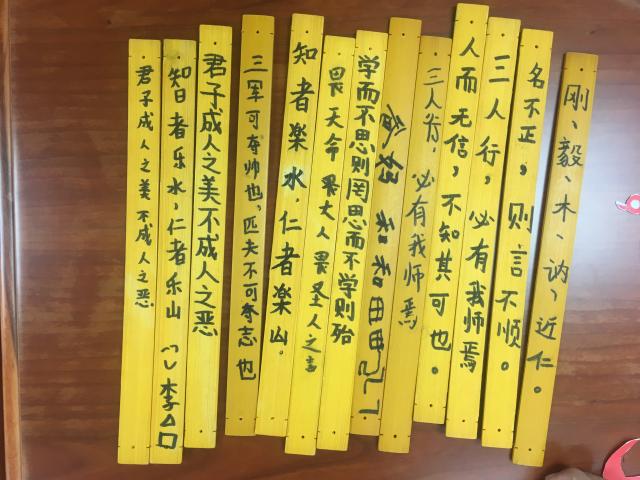 刚、毅、木、讷、近仁。
名不正，则言不顺。
三人行，必有我师焉
人而无信，不知其可也。
三人行，必有我师焉
学而不思则罔思而不学则殆
畏天命畏大人畏圣人之言
知者楽水，仁者楽山。
三军可夺帅也，匹夫不可夺志也
君子成人之美不成人之恶
智者乐水，仁者乐山 李
君子成人之美 不成人之恶